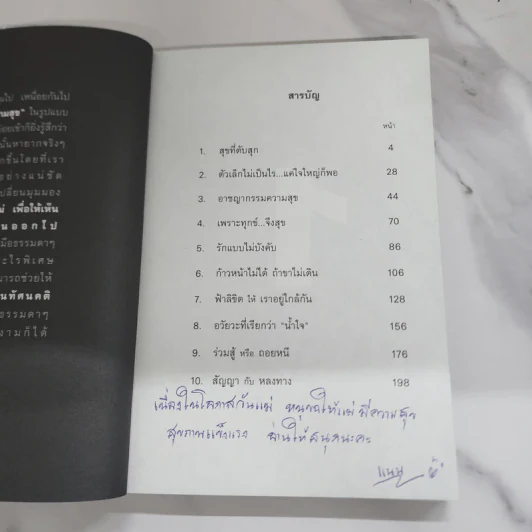 นไป เหนื่อยกันไป
ามสุข" ในรูปแบบ
่อยเข้าก็ยิ่งรู้สึกว่า
นั้นหายากจริงๆ
กขึ้นโดยที่เรา
อย่างแน่ชัด
ปลี่ยนมุมมอง
ม่ เพื่อให้เห็น
นออกไป
มือธรรมดาๆ
ะไรพิเศษ
ารถช่วยให้
นทัศนคติ
ธรรมดาๆ
งามก็ได้
สารบัญ
หน้า
1. สุขที่ดับสุก 4
2. ตัวเล็กไม่เป็นไร...แค่ใจใหญ่ก็พอ 28
3. อาชญากรรมความสุข 44
4. เพราะทุกข์...จึงสุข 70
5. รักแบบไม่บังคับ 86
6. ก้าวหน้าไม่ได้ ถ้าขาไม่เดิน 106
7. ฟ้าลิขิต ให้ เราอยู่ใกล้กัน 128
8. อวัยวะที่เรียกว่า "น้ำใจ" 156
9. ร่วมสู้ หรือ ถอยหนี 176
10. สัญญา กับ หลงทาง 198
เนื่องในโอกาสวันแม่ หนูขอให้แม่มีความสุข
สุขภาพแข็งแรง อ่านให้สนุกนะคะ